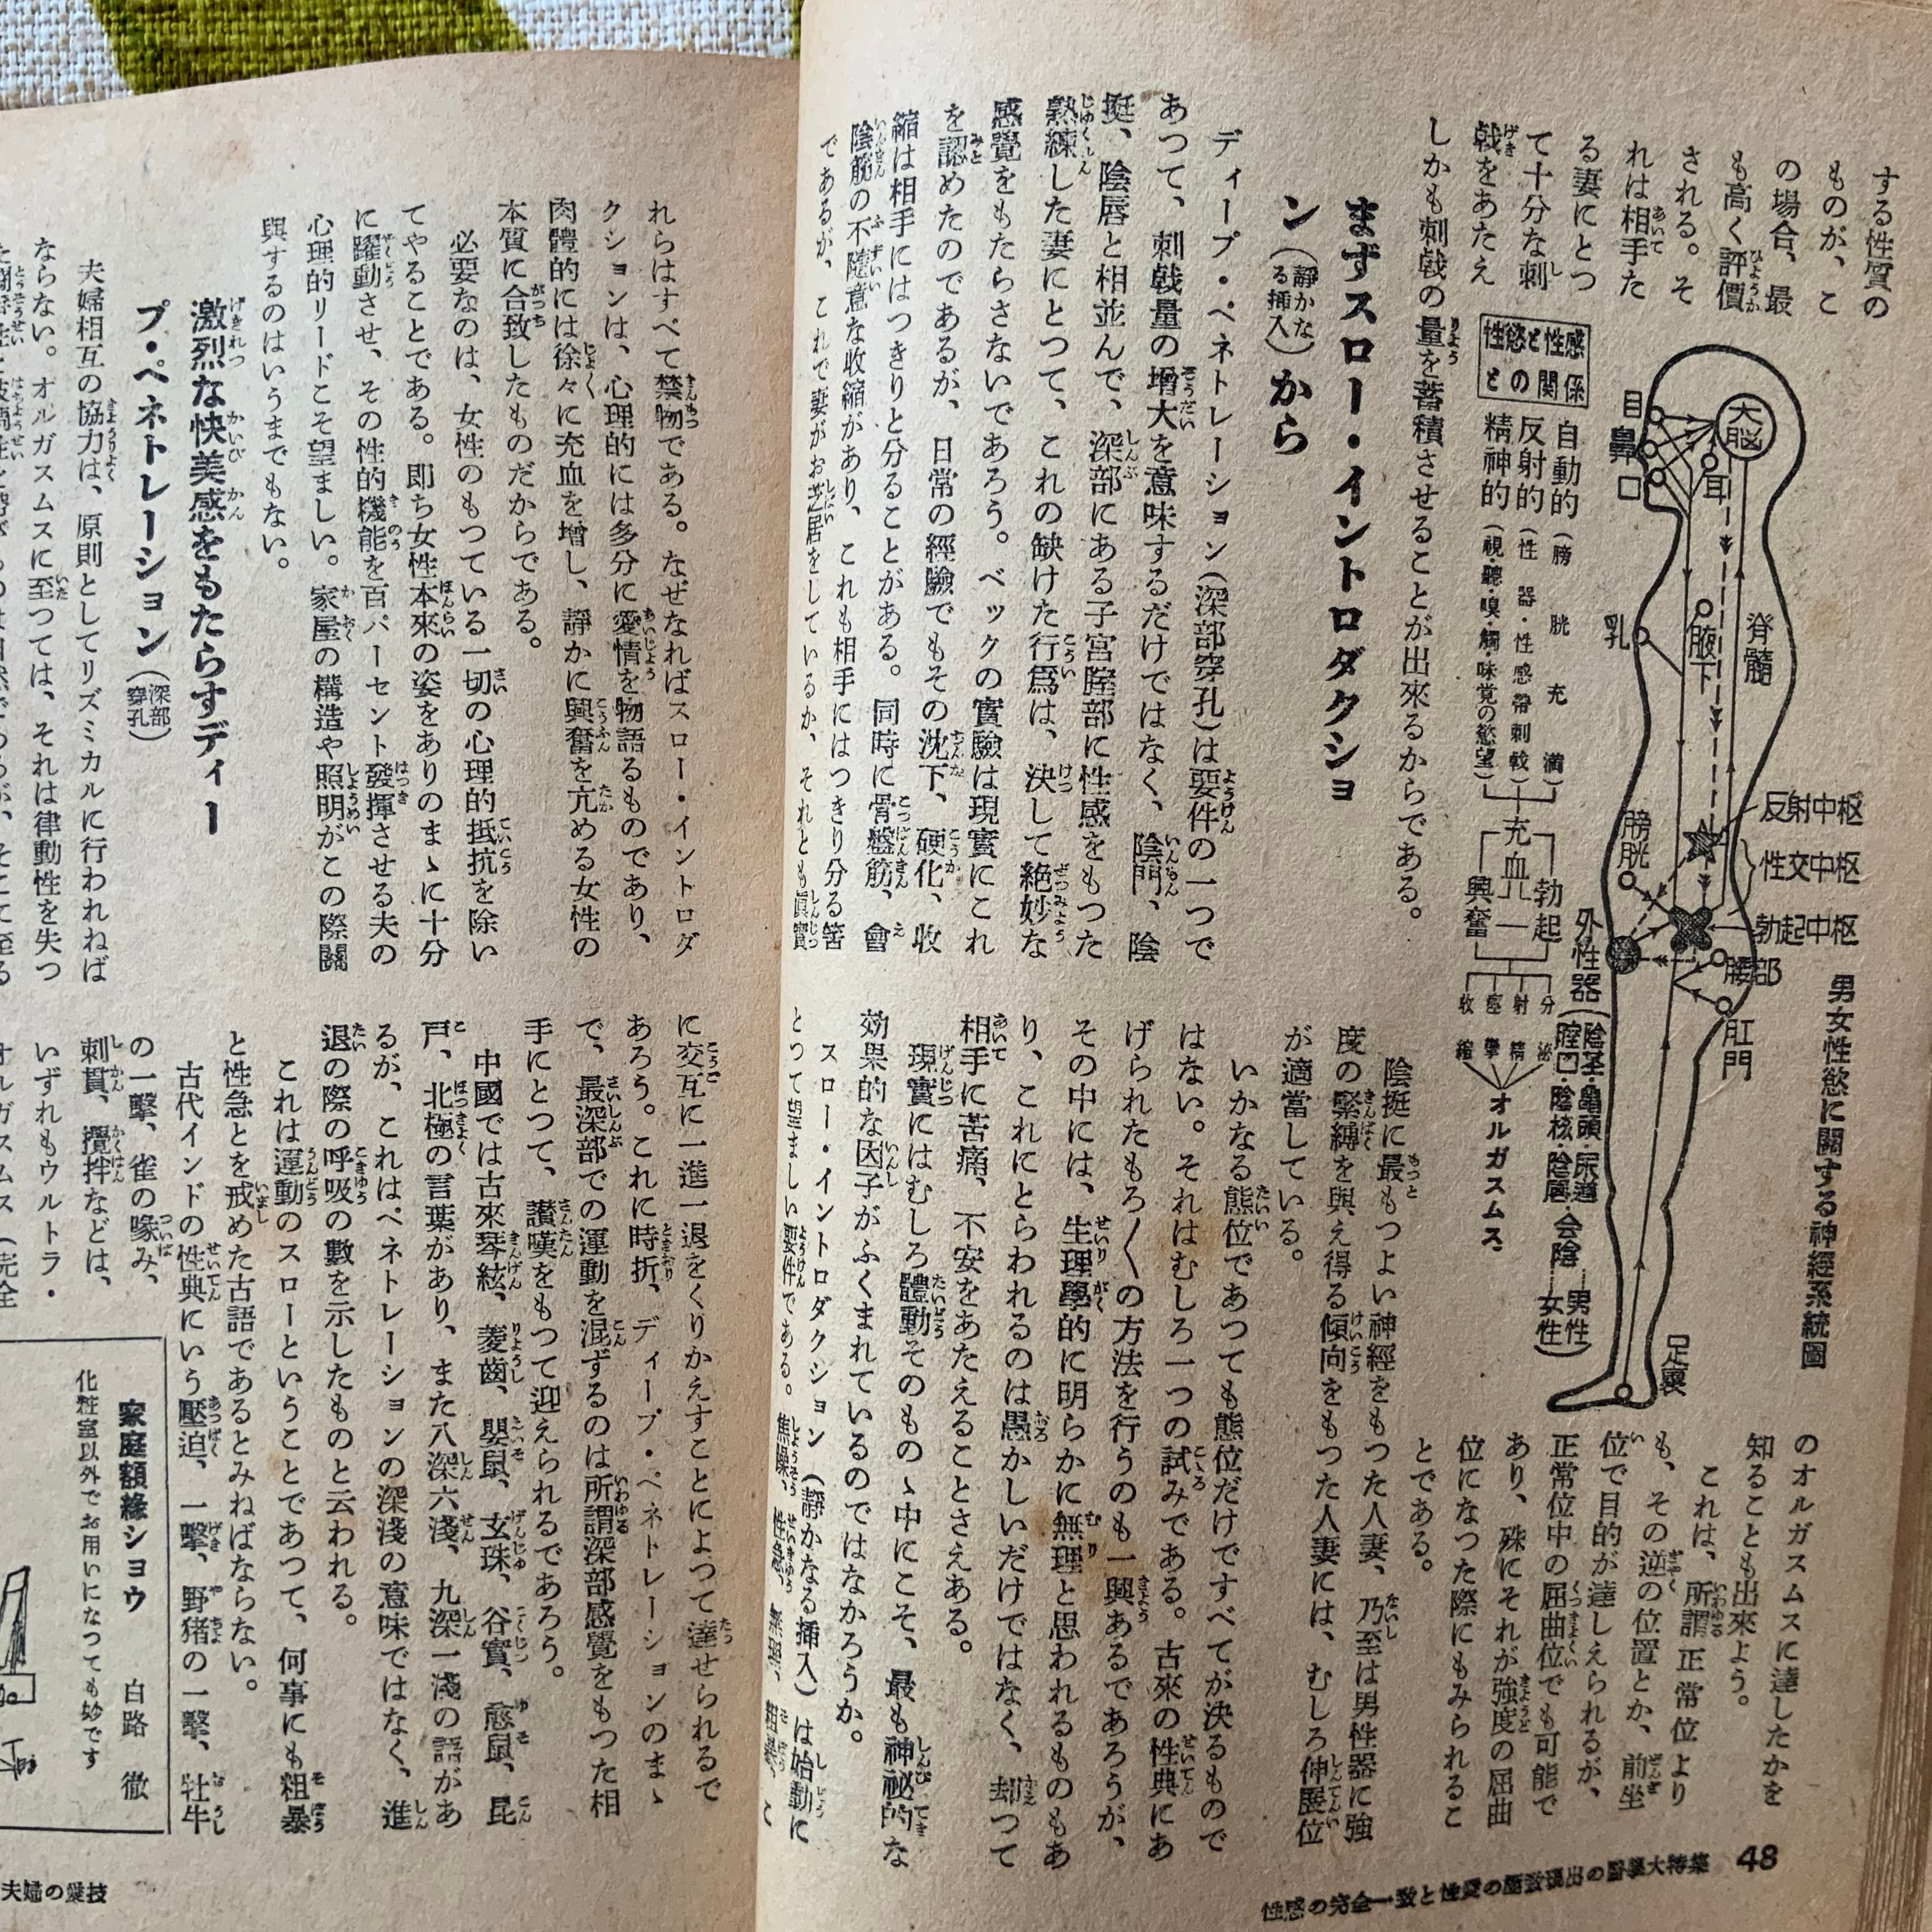 する性質の
ものが、こ
の場合、最
も高く評價
される。そ
れは相手た
る妻にとつ
て十分な刺
戟をあたえ
しかも刺戟の量を蓄積させることが出來るからである。
まずスロー・イントロダクショ
ン（靜かな る挿入）から
ディープ・ペネトレーション（深部穿孔）は要件の一つで
あつて、刺戟量の增大を意味するだけではなく、陰門、陰
挺、陰唇と相並んで、深部にある子宮腟部に性感をもつた
熟練した妻にとつて、これの缺けた行爲は、決して絶妙な
感覺をもたらさないであろう。ベックの實驗は現實にこれ
を認めたのであるが、日常の經驗でもその沈下、硬化、收
縮は相手にはつきりと分ることがある。同時に骨盤筋、會
陰筋の不隨意な收縮があり、これも相手にはつきり分る筈
であるが、これで妻がお芝居をしているか、それとも眞實
男女性慾に關する神經系統圖
性慾と性感
との關係
自動的（膀胱充滿）
反射的（性器・性感帶刺戟）
精神的（視・聽・嗅・觸・味覚の慾望）
充血
勃起
興奮
分泌
射精
痙攣
收縮
オルガスムス
大脳
目
鼻
口
耳
乳
腋下
脊髓
反射中枢
性交中枢
勃起中枢
膀胱
腰部
肛門
外性器
陰莖・龜頭・尿道
腟口・陰核・陰唇
会陰
男性
女性
足裏
のオルガスムスに達したかを
知ることも出來よう。
これは、所謂正常位より
も、その逆の位置とか、前坐
位で目的が達しえられるが、
正常位中の屈曲位でも可能で
あり、殊にそれが強度の屈曲
位になつた際にもみられるこ
とである。
陰挺に最もつよい神經をもつた人妻、乃至は男性器に強
度の緊縛を與え得る傾向をもつた人妻には、むしろ伸展位
が適當している。
いかなる態位であつても態位だけですべてが決るもので
はない。それはむしろ一つの試みである。古來の性典にあ
げられたもろ〱の方法を行うのも一興あるであろうが、
その中には、生理學的に明らかに無理と思われるものもあ
り、これにとらわれるのは愚かしいだけではなく、却つて
相手に苦痛、不安をあたえることさえある。
現實にはむしろ體動そのものゝ中にこそ、最も神祕的な
効果的な因子がふくまれているのではなかろうか。
スロー・イントロダクション（靜かなる挿入）は始動に
とつて望ましい要件である。焦燥、性急、無理、粗暴、こ
48
性感の完全一致と性愛の
の醫學大特集
れらはすべて禁物である。なぜなればスロー・イントロダ
クションは、心理的には多分に愛情を物語るものであり、
肉體的には徐々に充血を增し、靜かに興奮を亢める女性の
本質に合致したものだからである。
必要なのは、女性のもつている一切の心理的抵抗を除い
てやることである。即ち女性本來の姿をありのまゝに十分
に躍動させ、その性的機能を百パーセント發揮させる夫の
心理的リードこそ望ましい。家屋の構造や照明がこの際關
與するのはいうまでもない。
激烈な快美感をもたらすディー
プ・ペネトレーション（深部 穿孔）
夫婦相互の協力は、原則としてリズミカルに行われねば
ならない。オルガスムスに至つては、それは律動性を失つ
に交互に一進一退をくりかえすことによつて達せられるで
あろう。これに時折、ディープ・ペネトレーションのまゝ
で、最深部での運動を混ずるのは所謂深部感覺をもつた相
手にとつて、讃嘆をもつて迎えられるであろう。
中國では古來琴絃、菱齒、嬰鼠、玄珠、谷實、愈鼠、昆
戸、北極の言葉があり、また八深六淺、九深一淺の語があ
るが、これはペネトレーションの深淺の意味ではなく、進
退の際の呼吸の數を示したものと云われる。
これは運動のスローということであつて、何事にも粗暴
と性急とを戒めた古語であるとみねばならない。
古代インドの性典にいう壓迫、一擊、野猪の一擊、牡牛
の一擊、雀の喙み、
刺貫、攪拌などは、
いずれもウルトラ・
オルガスムス（完全
家庭額緣ショウ 白路 徹
化粧室以外でお用いになつても妙です
夫婦の愛技